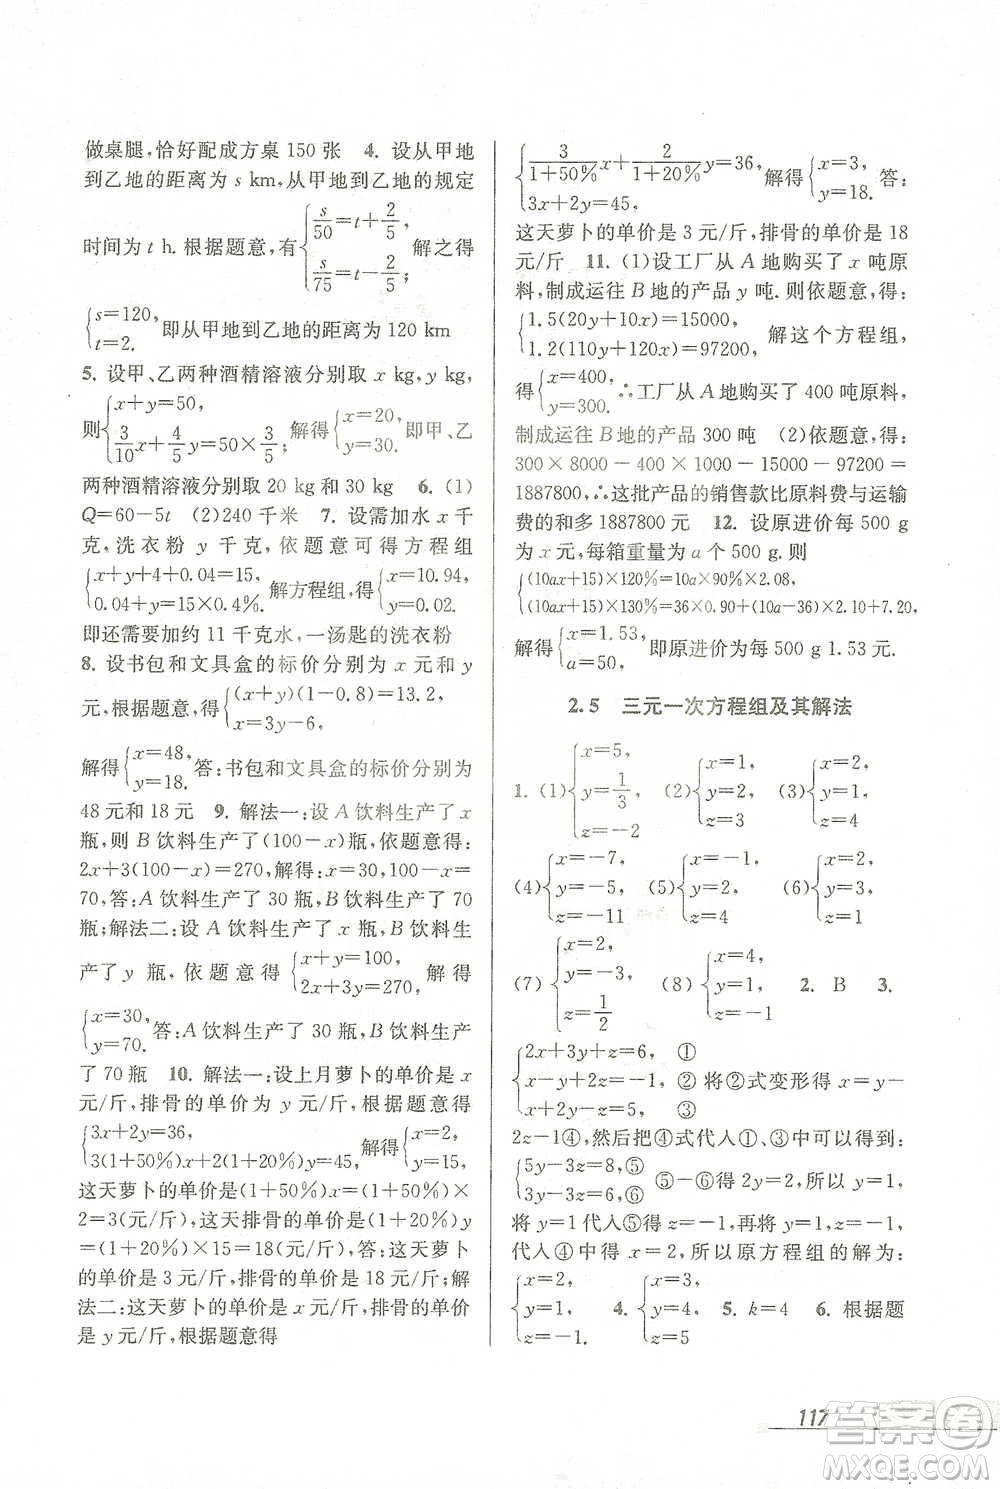 做桌腿,恰好配成方桌 150 张　4. 设从甲地
到乙地的距离为 s km,从甲地到乙地的规定
时间为 t h. 根据题意,有{s/50=t+2/5, s/75=t-2/5, 解之得
{s=120, t=2. 即从甲地到乙地的距离为 120 km
5. 设甲、乙两种酒精溶液分别取 x kg,y kg,
则{x+y=50, 3/10x+4/5y=50×3/5; 解得{x=20, y=30. 即甲、乙
两种酒精溶液分别取 20 kg 和 30 kg　6. (1)
Q=60-5t　(2)240 千米　7. 设需加水 x 千
克,洗衣粉 y 千克,依题意可得方程组
{x+y+4+0.04=15, 0.04+y=15×0.4%. 解方程组,得{x=10.94, y=0.02.
即还需要加约 11 千克水,一汤匙的洗衣粉
8. 设书包和文具盒的标价分别为 x 元和 y
元,根据题意,得{(x+y)(1-0.8)=13.2, x=3y-6,
解得{x=48, y=18. 答:书包和文具盒的标价分别为
48 元和 18 元　9. 解法一:设 A 饮料生产了 x
瓶,则 B 饮料生产了(100-x)瓶,依题意得:
2x+3(100-x)=270,解得:x=30,100-x=
70,答:A 饮料生产了 30 瓶,B 饮料生产了 70
瓶;解法二:设 A 饮料生产了 x 瓶,B 饮料生
产了 y 瓶,依题意得{x+y=100, 2x+3y=270, 解得
{x=30, y=70. 答:A 饮料生产了 30 瓶,B 饮料生产
了 70 瓶　10. 解法一:设上月萝卜的单价是 x
元/斤,排骨的单价为 y 元/斤,根据题意得
{3x+2y=36, 3(1+50%)x+2(1+20%)y=45, 解得{x=2, y=15.
这天萝卜的单价是(1+50%)x=(1+50%)×
2=3(元/斤),这天排骨的单价是(1+20%)y
=(1+20%)×15=18(元/斤),答:这天萝卜
的单价是 3 元/斤,排骨的单价是 18 元/斤;解
法二:设这天萝卜的单价是 x 元/斤,排骨的单价
是 y 元/斤,根据题意得
{3/(1+50%)x+2/(1+20%)y=36, 3x+2y=45, 解得{x=3, y=18. 答:
这天萝卜的单价是 3 元/斤,排骨的单价是 18
元/斤　11. (1)设工厂从 A 地购买了 x 吨原
料,制成运往 B 地的产品 y 吨.则依题意,得:
{1.5(20y+10x)=15000, 1.2(110y+120x)=97200, 解这个方程组,
得{x=400, y=300. ∴工厂从 A 地购买了 400 吨原料,
制成运往 B 地的产品 300 吨　(2)依题意,得:
300×8000-400×1000-15000-97200=
1887800,∴这批产品的销售款比原料费与运输
费的和多 1887800 元　12. 设原进价每 500 g
为 x 元,每箱重量为 a 个 500 g.则
{(10ax+15)×120%=10a×90%×2.08, (10ax+15)×130%=36×0.90+(10a-36)×2.10+7.20,
解得{x=1.53, a=50, 即原进价为每 500 g 1.53 元.
2.5　三元一次方程组及其解法
1. (1){x=5, y=1/3, z=-2　(2){x=1, y=2, z=3　(3){x=2, y=1, z=-1
(4){x=-7, y=-5, z=-11　(5){x=-1, y=1, z=0　(6){x=2, y=1, z=-1
(7){x=2, y=-3, z=1/2　(8){x=4, y=1, z=-1　2. B　3.
{2x+3y+z=6, ① x-y+2z=-1, ② x+2y-z=5, ③ 将②式变形得 x=y-
2z-1④,然后把④式代人①、③中可以得到:
{5y-3z=8,⑤ 3y-3z=6,⑥ ⑤-⑥得 2y=2,所以 y=1,
将 y=1 代人⑤得 z=-1,再将 y=1,z=-1
代人④中得 x=2,所以原方程组的解为:
{x=2, y=1, z=-1.　4. {x=3, y=4, z=5　5. k=4　6. 根据题
117
答案圈
MXQE.COM